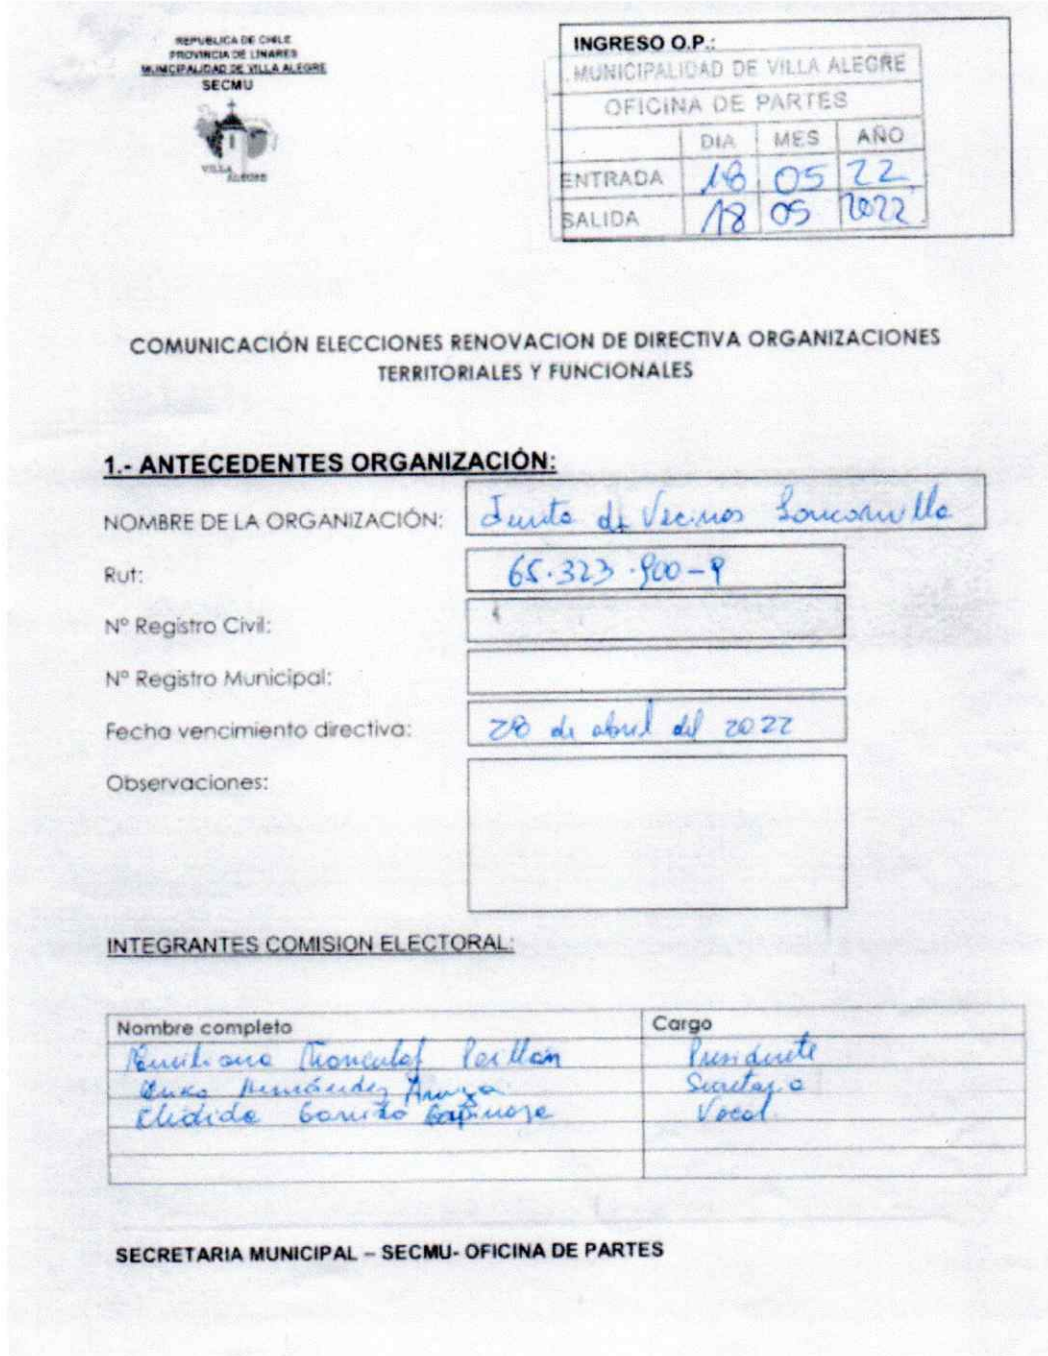 REPUBLICA DE CHILE
PROVINCIA DE LINARES
MUNICIPALIDAD DE VILLA ALEGRE
SECMU
VILLA
ALEGRE
INGRESO O.P.:
MUNICIPALIDAD DE VILLA ALEGRE
OFICINA DE PARTES
DIA MES AÑO
ENTRADA 18 05 22
SALIDA 18 05 2022
COMUNICACIÓN ELECCIONES RENOVACION DE DIRECTIVA ORGANIZACIONES
TERRITORIALES Y FUNCIONALES
1.- ANTECEDENTES ORGANIZACIÓN:
NOMBRE DE LA ORGANIZACIÓN: Junta de Vecinos Loncomilla
Rut: 65.323.900-9
Nº Registro Civil:
Nº Registro Municipal:
Fecha vencimiento directiva: 28 de abril del 2022
Observaciones:
INTEGRANTES COMISION ELECTORAL:
Nombre completo Cargo
Presidente
Hernández Secretario
Garrido Espinoza Vocal
SECRETARIA MUNICIPAL – SECMU- OFICINA DE PARTES